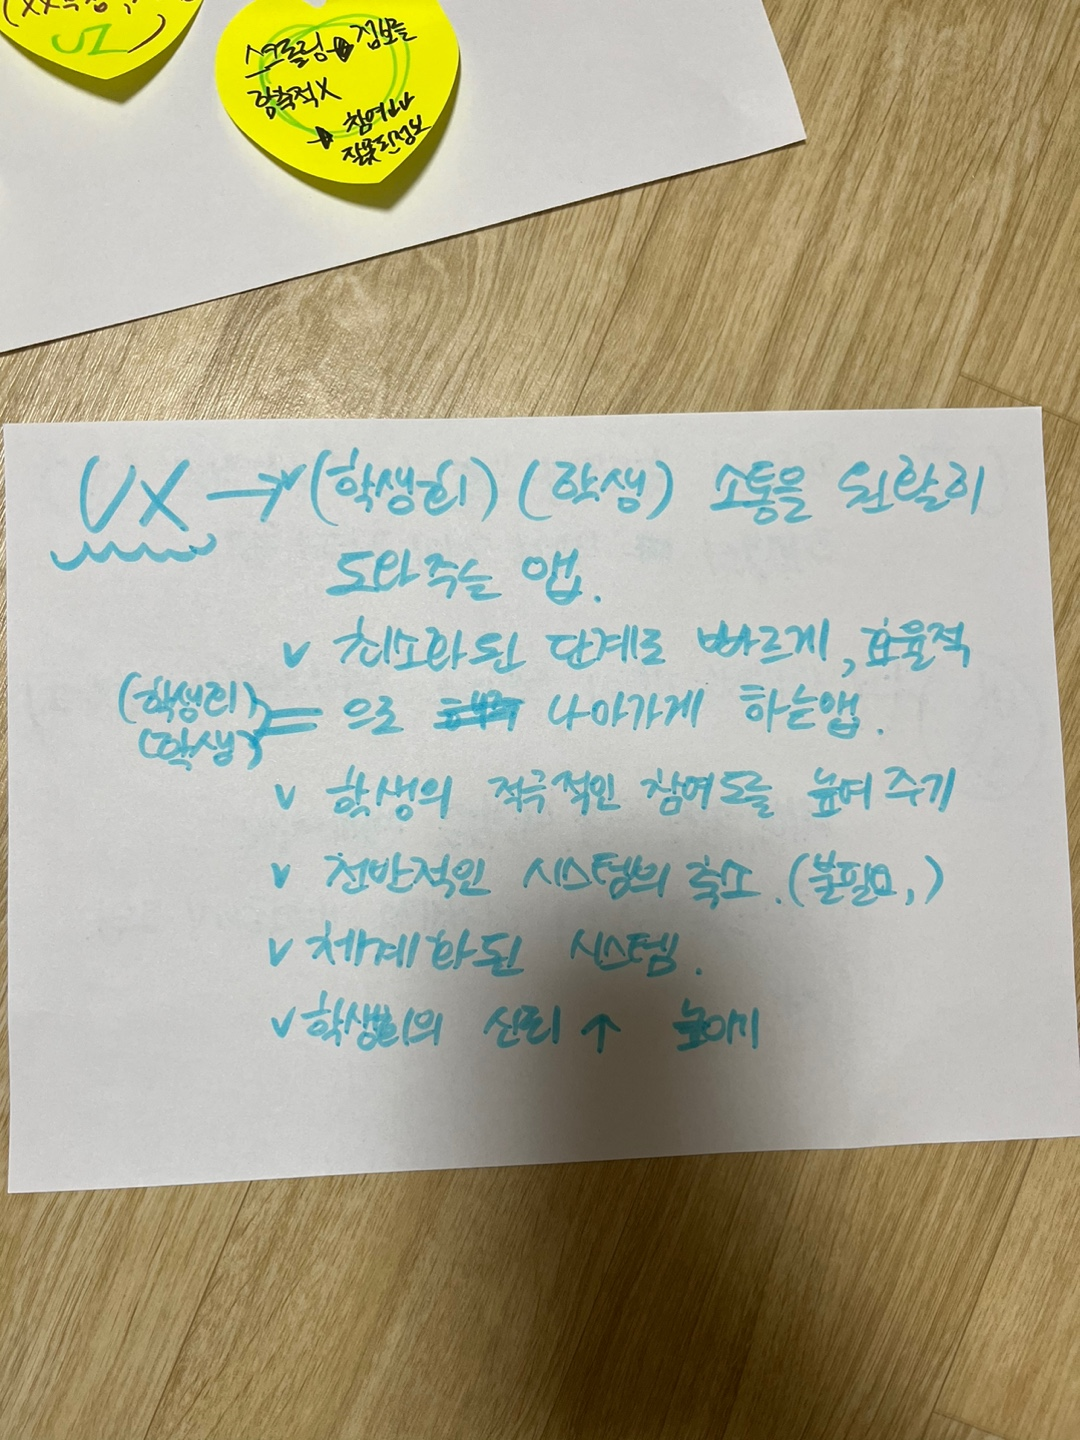 스크롤링 → 정보를
함축적X
→ 참여나
잘못된정보
UX → (학생회) (학생) 소통을 원활히
도와주는 앱.
v 최소화된 단계로 빠르게, 효율적
(학생회) = 으로 나아가게 하는앱.
(학생)
v 학생의 적극적인 참여도를 높여주기
v 전반적인 시스템의 축소. (불필요,)
v 체계화된 시스템.
v 학생회의 신뢰 ↑ 높이기